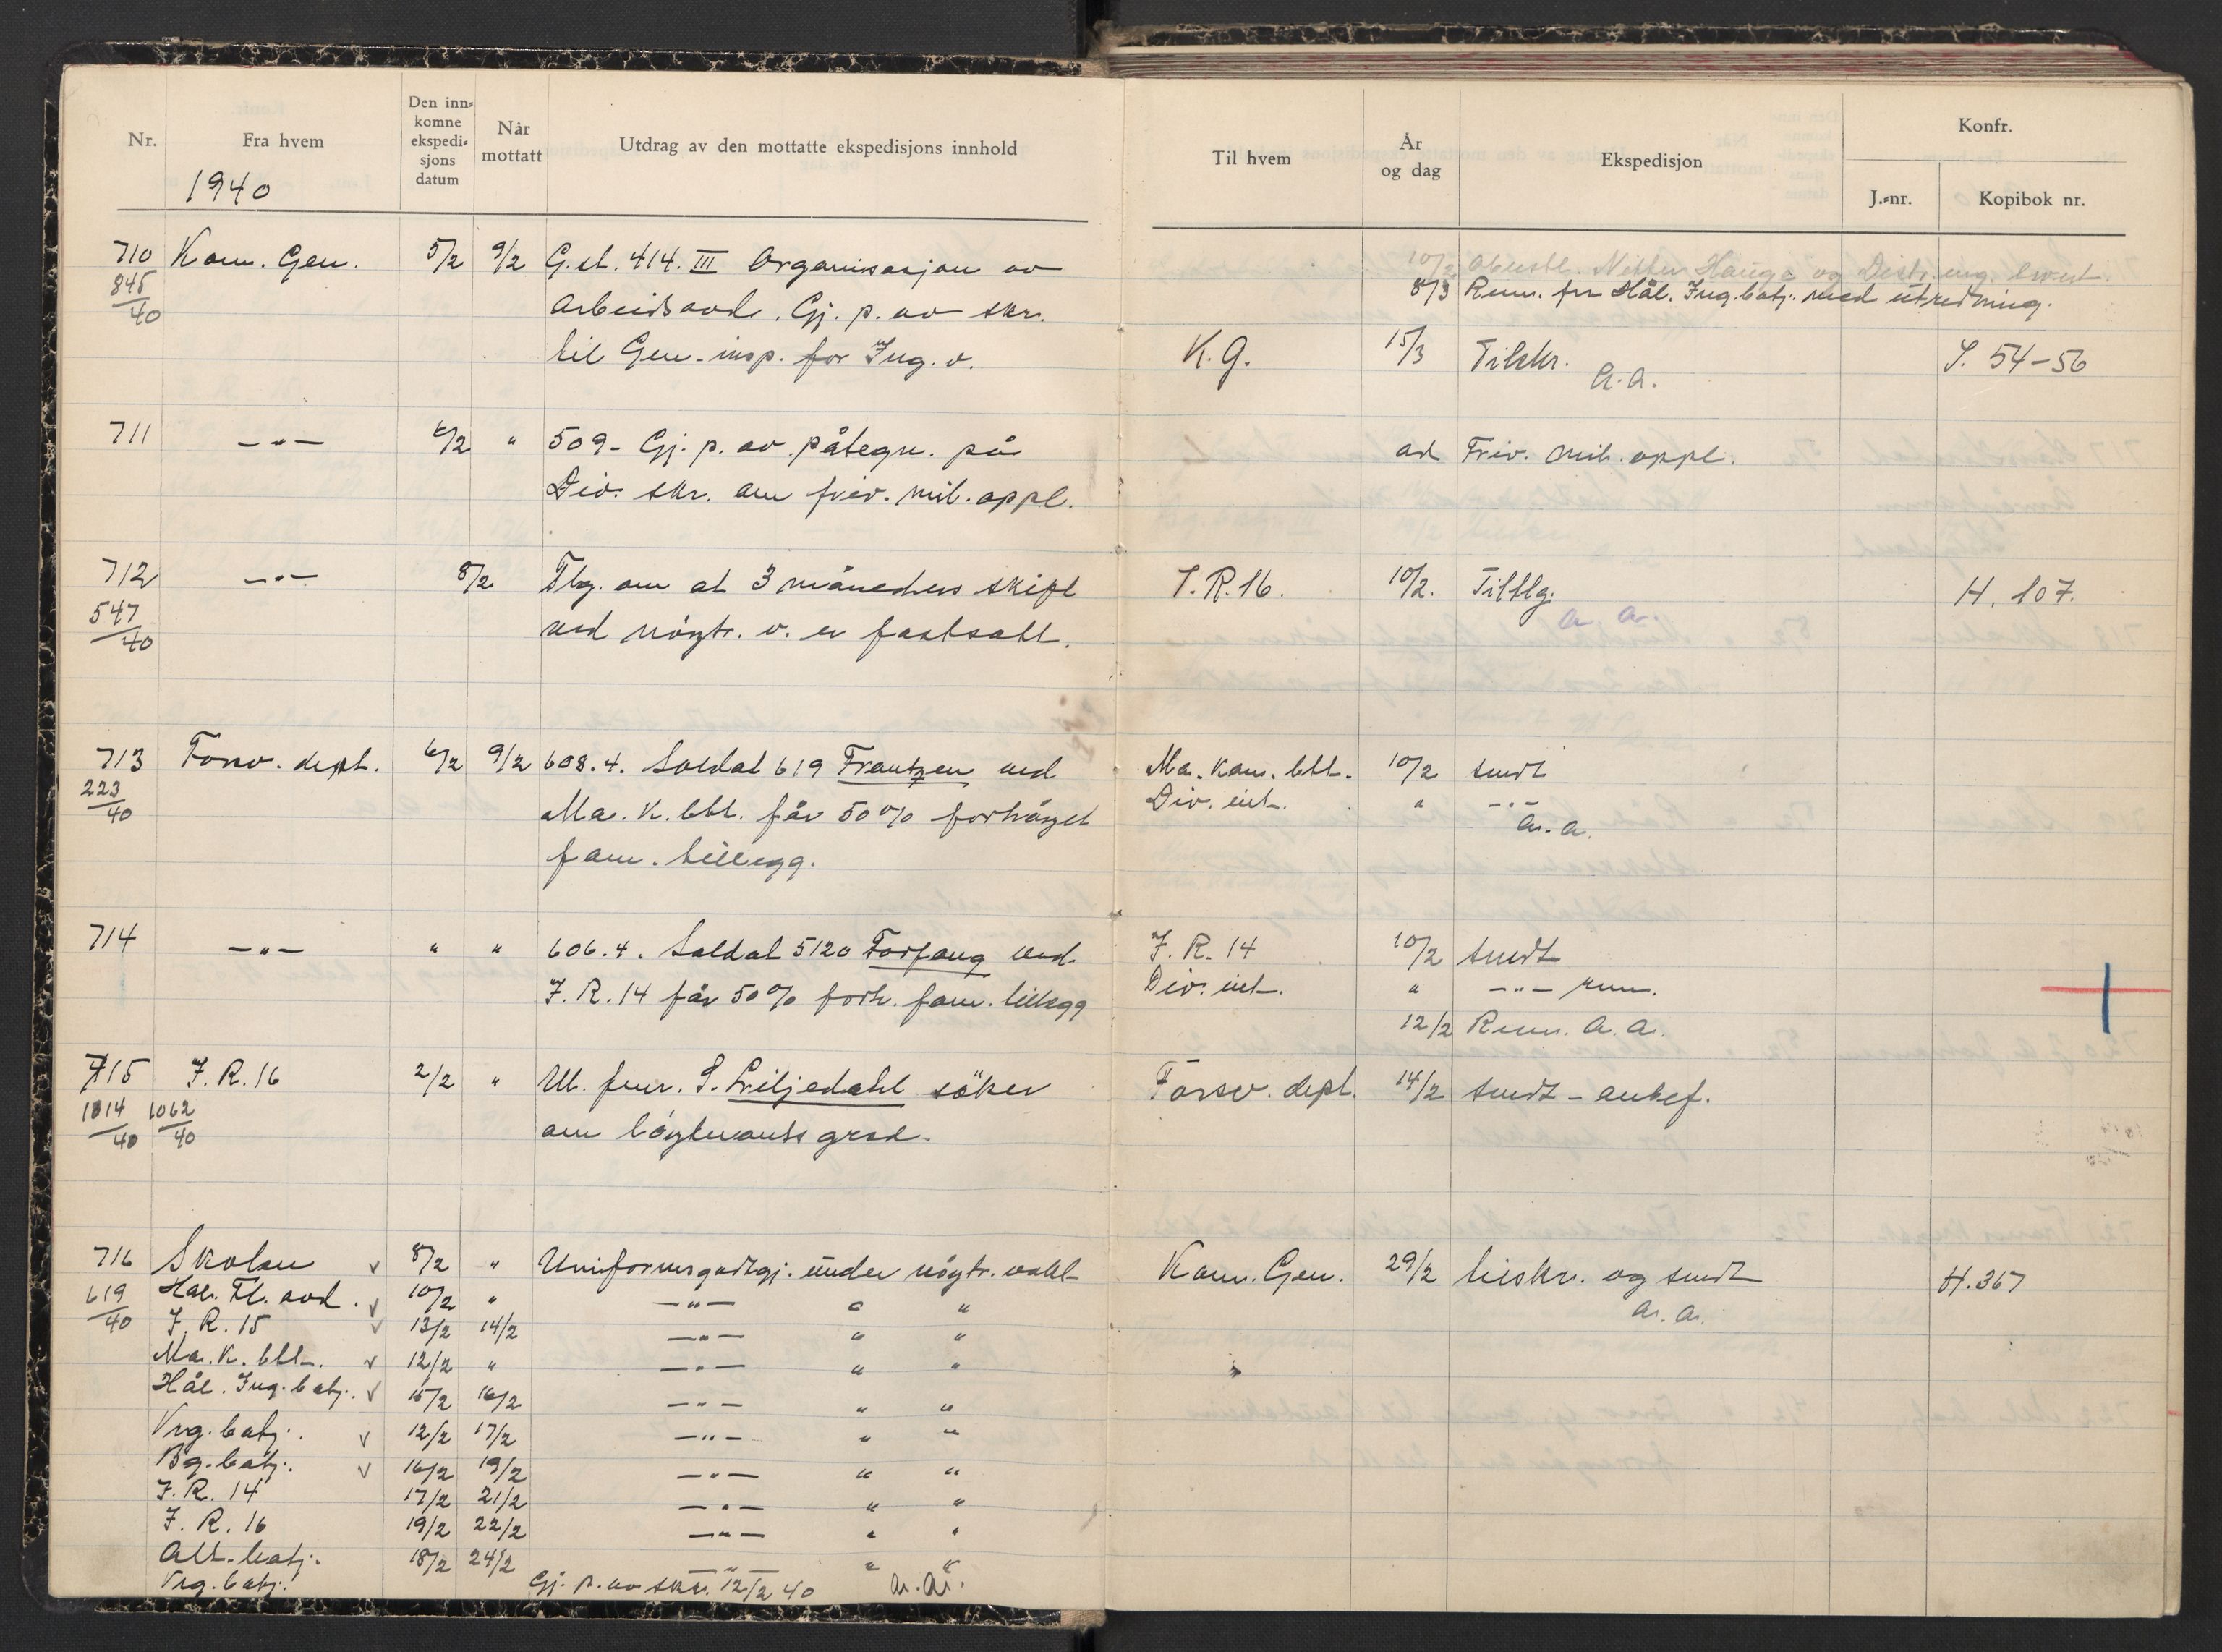 Nr.
Fra hvem
Den inn-
komne
ekspedi-
sjons
datum
Når
mottatt
Utdrag av den mottatte ekspedisjons innhold
1940
710 Kom. Gen. 5/2 9/2 G.st. 414. III Organisasjon av
845/40 Arbeidsavd. Gj. p. av skr.
til Gen.insp. for Ing. v.
711 —"— 6/2 " 509- Gj. p. av påtegn. på
Div. skr. om friv. mil. oppl.
712 —"— 8/2 Tlg. om at 3 måneders skift
547/40 ved nøytr. v. er fastsatt.
713 Forsv. dept. 6/2 9/2 608.4. Soldat 619 Frantzen ved
223/40 Ma. K. btl. får 50% forhøyet
fam. tillegg.
714 —"— " " 606.4. Soldat 5120 Forfang ved
I.R. 14 får 50% forh. fam. tillegg
715 I.R. 16 2/2 " Ut. fenr. S. Liljedahl söker
1014/40 1062/40 om löytnants grad.
716 Skolen v 8/2 " Uniformsgodtgj. under nøytr. vakt
619/40 Hål. Fl. avd. v 10/2 " —"— " "
I.R. 15 v 13/2 14/2 —"— " "
Ma. K. btl. v 12/2 " —"— " "
Hål. Ing. batj. v 15/2 16/2 —"— " "
Vrg. batj. v 12/2 17/2 —"— " "
Bg. batj. v 16/2 19/2 —"— " "
I.R. 14 17/2 21/2 —"— " "
I.R. 16 19/2 22/2 —"— " "
Alt. batj. 18/2 24/2 —"— " "
Vrg. batj. Gj. p. av skr. 12/2 40 a.a.
Til hvem
År
og dag
Ekspedisjon
Konfr.
J.-nr.
Kopibok nr.
10/2 Hauge og Distr. ing.
8/3 Renn. fra Hål. Ing. batj. med utredning.
K.G. 15/3 Tilskr. S. 54-56
a.a.
ad Friv. mil. oppl.
I.R. 16. 10/2. Tiltlg. H. 107.
a.a.
Ma. kom. btl. 10/2 sendt
Div. int. " —"—
a.a.
I.R. 14 10/2 sendt
Div. int. " —"— renn.
12/2 Renn. a.a.
Forsv. dept. 14/2 sendt - anbef.
Kom. Gen. 29/2 tilskr. og sendt H. 367
a.a.